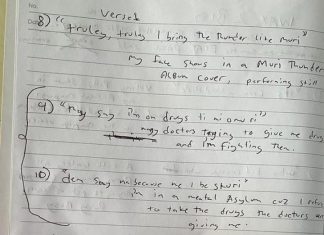 No.
Verses
8) "truley, truly I bring the thunder like muri"
my face shows in a Muri Thunder
Album cover, performing still
9) "they say i'm on drugs ti ni onuri"
my doctors trying to give me drugs
and i'm fighting them.
10) "dem say na because me I be shuri"
in in a mental Asylum cuz I refuse
to take the drugs the doctors are
giving me.